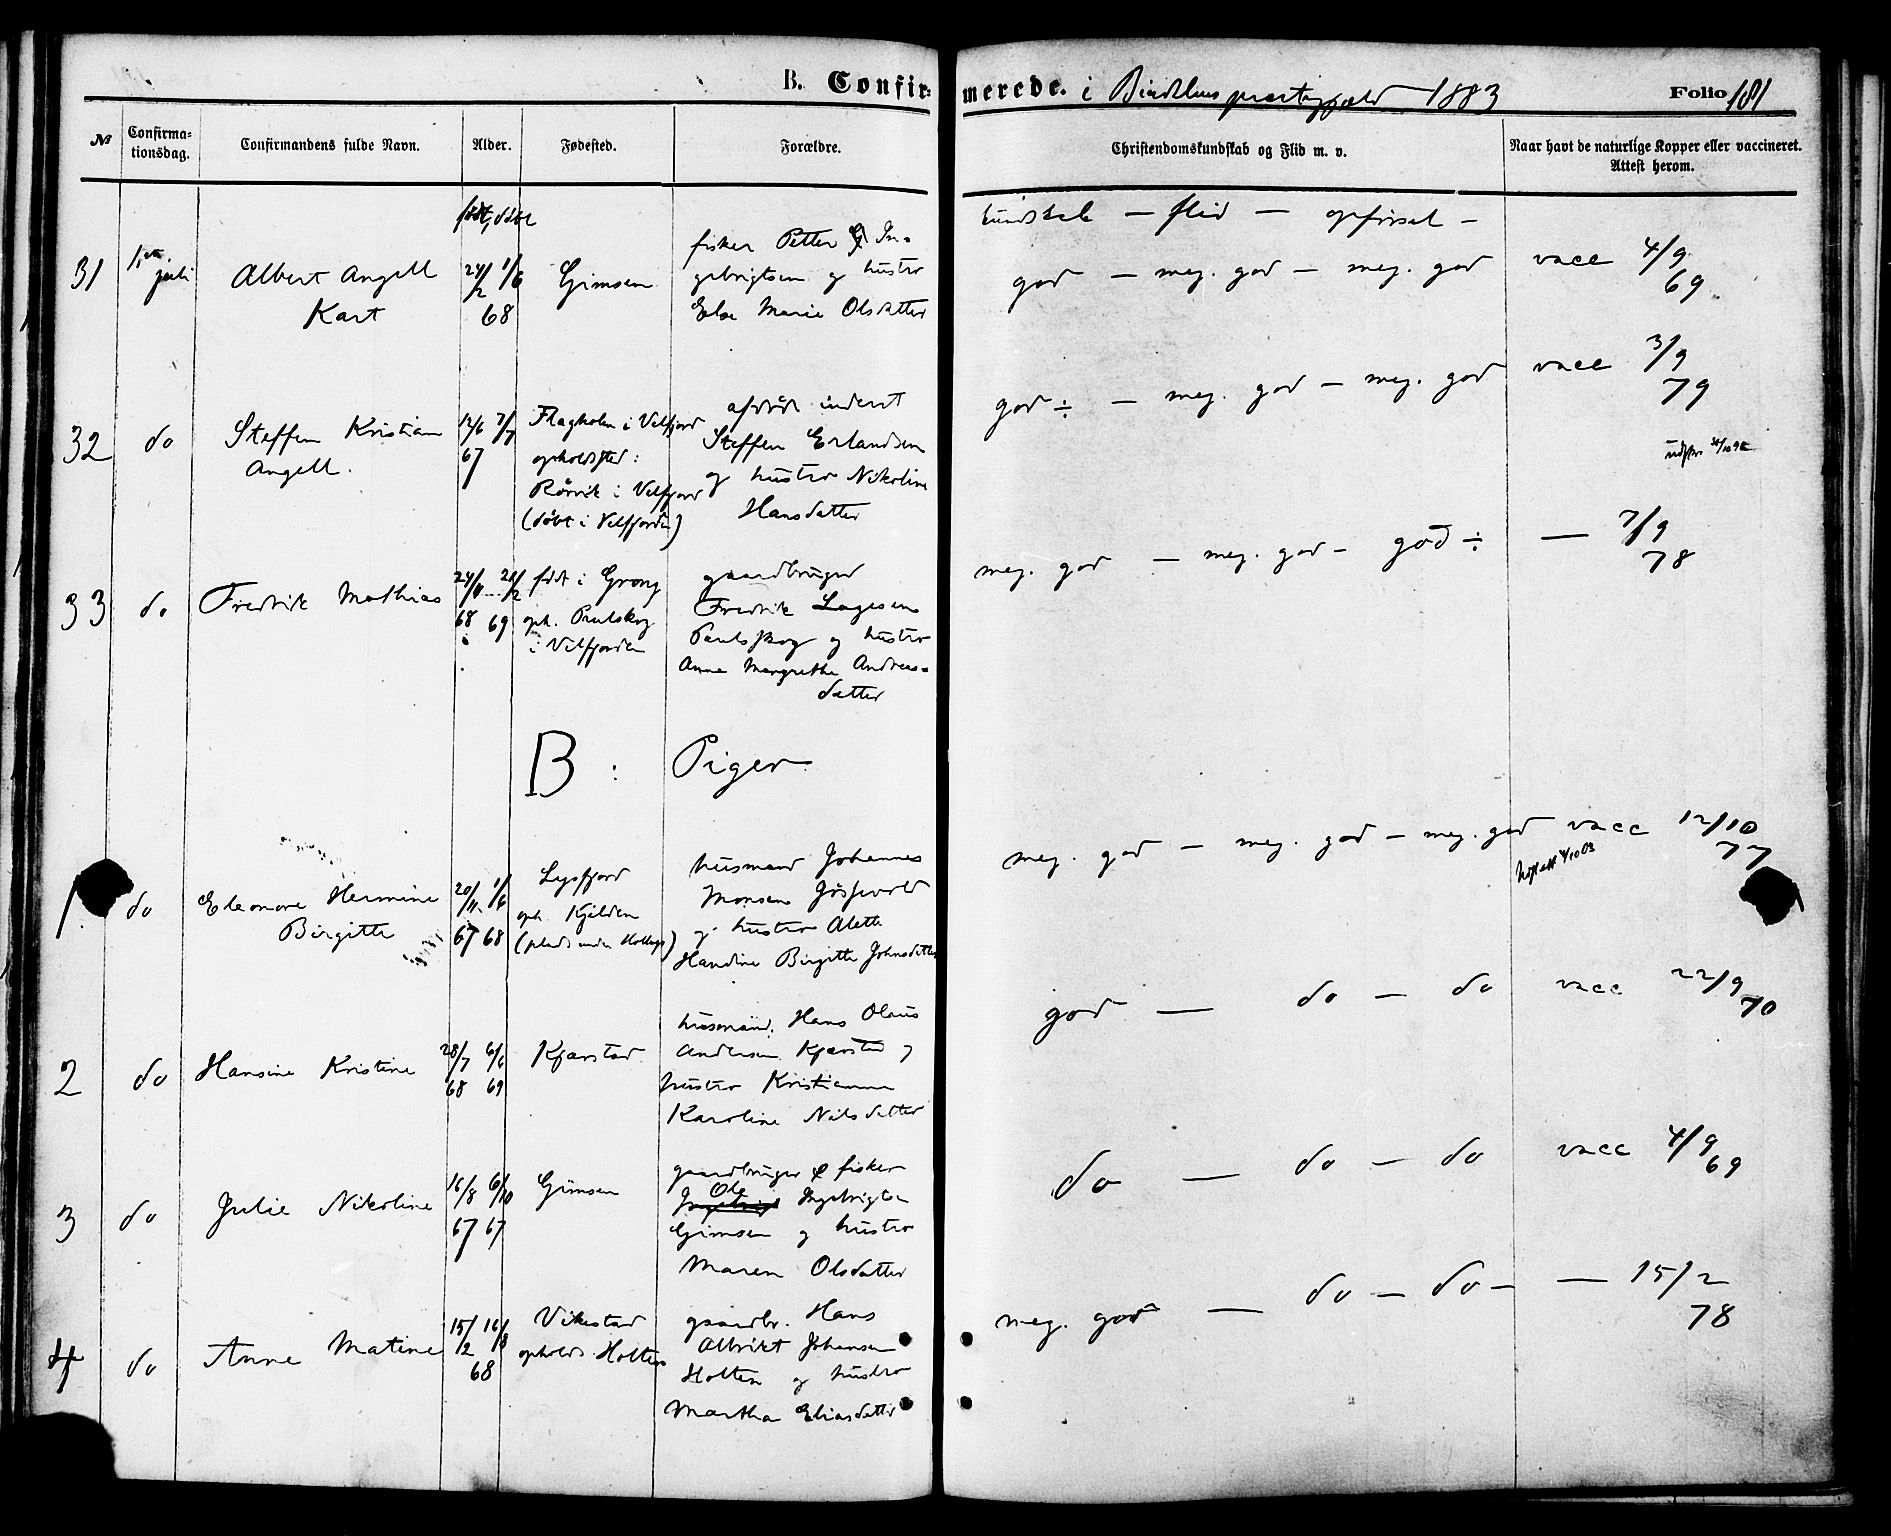 B. Confirmerede. i Bindalens præstegjæld 1883 Folio 181
№ Confirmationsdag. Confirmandens fulde Navn. Alder. Fødested. Forældre. Christendomskundskab og Flid m. v. Naar havt de naturlige Kopper eller vaccineret. Attest herom.
født, døbt
kundskab — flid — opførsel —
31 1ste juli Albert Angell Kart
24/2 1/6 68
Gimsen
fisker Petter G In-
gebrigtsen og hustru
Else Marie Olsdatter
god — meg. god — meg. god vacc 4/9 69
32 do Steffen Kristian Angell.
12/6 7/7 67
Flagholm i Velfjord
opholdsted:
Rørvik i Velfjord
(døbt i Velfjorden)
afdøde inderst
Steffen Erlandsen
og hustru Nikoline
Hansdatter
god ÷ — meg. god — meg. god vacc 3/9 79
33 do Fredrik Mathias
24/11 68 21/2 69
født i Grong
oph. Paulskog
i Velfjorden
gaardbruger
Fredrik Lagesen
Paulskog og hustru
Anna Margrethe Andreas-
datter
meg. god — meg. god — god ÷ — 7/9 78
B : Piger
1 do Eleonore Hermine
Birgitte
20/11 67 1/6 68
Lysfjord
oph. Kjelden
(plads under Holten)
husmand Johannes
Monsen
og hustru Alette
Handine Birgitte Johnsdatter
meg. god — meg. god — meg. god vacc 12/10 77
2 do Hansine Kristine
28/7 68 6/6 69
Kjærstad
husmand. Hans Olaus
Andersen Kjærstad og
hustru Kristianna
Karoline Nilsdatter
god — do — do vacc 22/9 70
3 do Julie Nikoline
16/8 67 6/10 67
Gimsen
gaardbruger & fisker
Ole Ingebrigtsen
Gimsen og hustru
Maren Olsdatter
do — do — do vacc 4/9 69
4 do Anne Matine
15/2 16/8 68
Vikestad
opholds. Holten
gaardbr. Hans
Albrikt Johansen
Holten og hustru
Martha Eliasdatter
meg. god — do — do — — 15/2 78